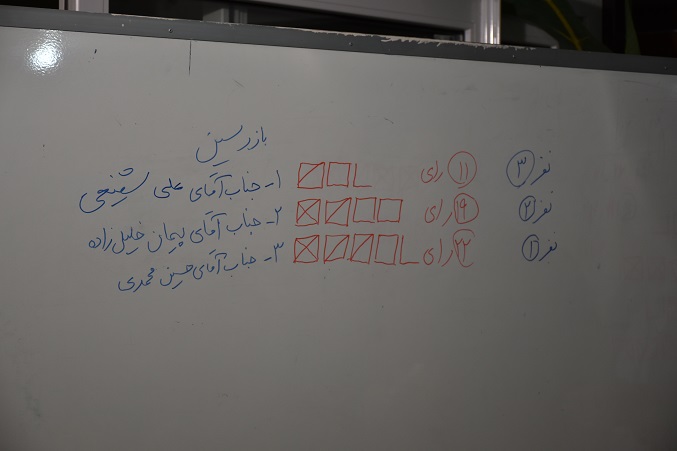 بازرسین
۱- جناب آقای علی شفیعی ۱۱ رای نفر ۳
۲- جناب آقای پیمان خلیل زاده ۱۹ رای نفر ۲
۳- جناب آقای حسین محمدی ۲۲ رای نفر ۱